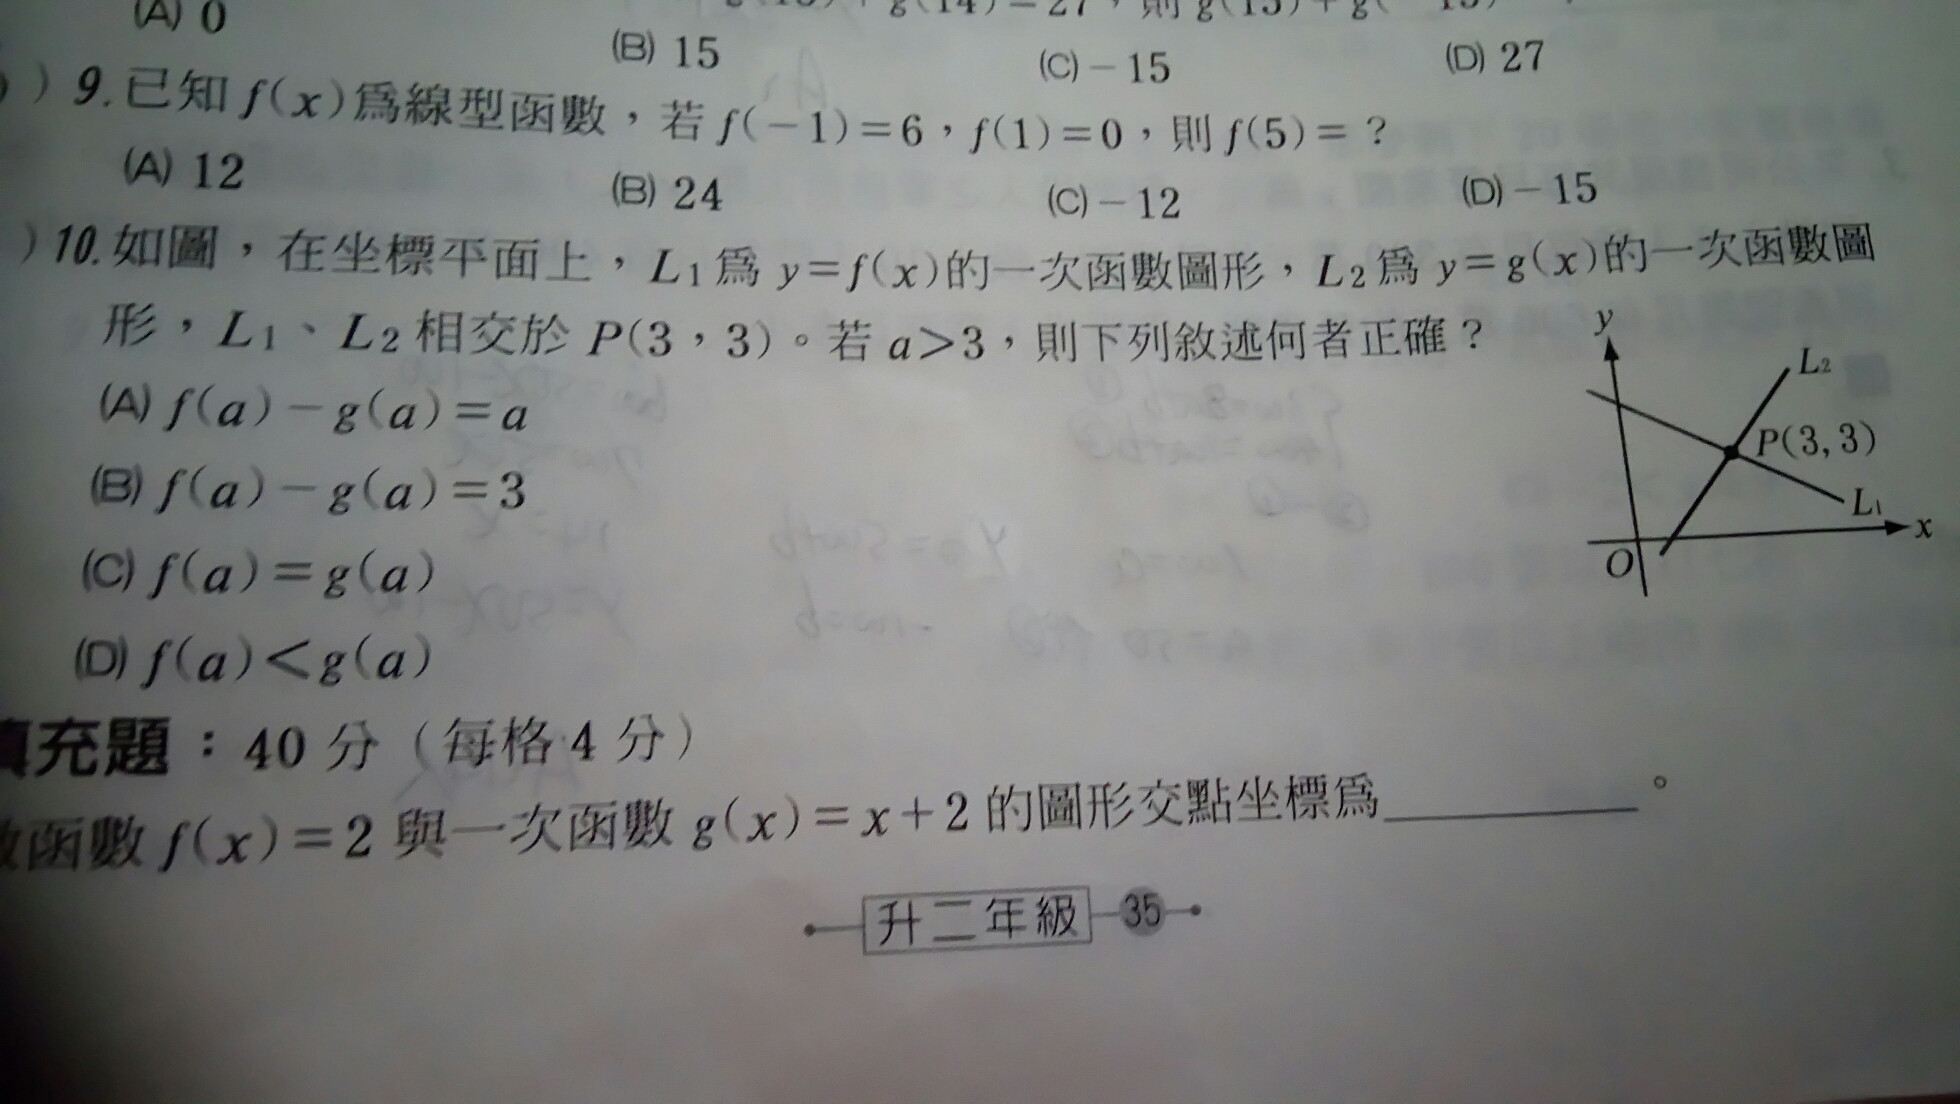 (A) 0
(B) 15
(C) －15
(D) 27
) 9. 已知 f(x)爲線型函數，若 f(－1)＝6，f(1)＝0，則 f(5)＝？
(A) 12
(B) 24
(C)－12
(D)－15
) 10. 如圖，在坐標平面上，L1爲 y＝f(x)的一次函數圖形，L2爲 y＝g(x)的一次函數圖
形，L1、L2相交於 P(3，3)。若 a＞3，則下列敘述何者正確？
(A) f(a)－g(a)＝a
(B) f(a)－g(a)＝3
(C) f(a)＝g(a)
(D) f(a)＜g(a)
y
L2
P(3, 3)
L1
x
O
填充題：40 分（每格 4 分）
函數 f(x)＝2 與一次函數 g(x)＝x＋2 的圖形交點坐標爲＿＿＿＿＿。
升二年級 35